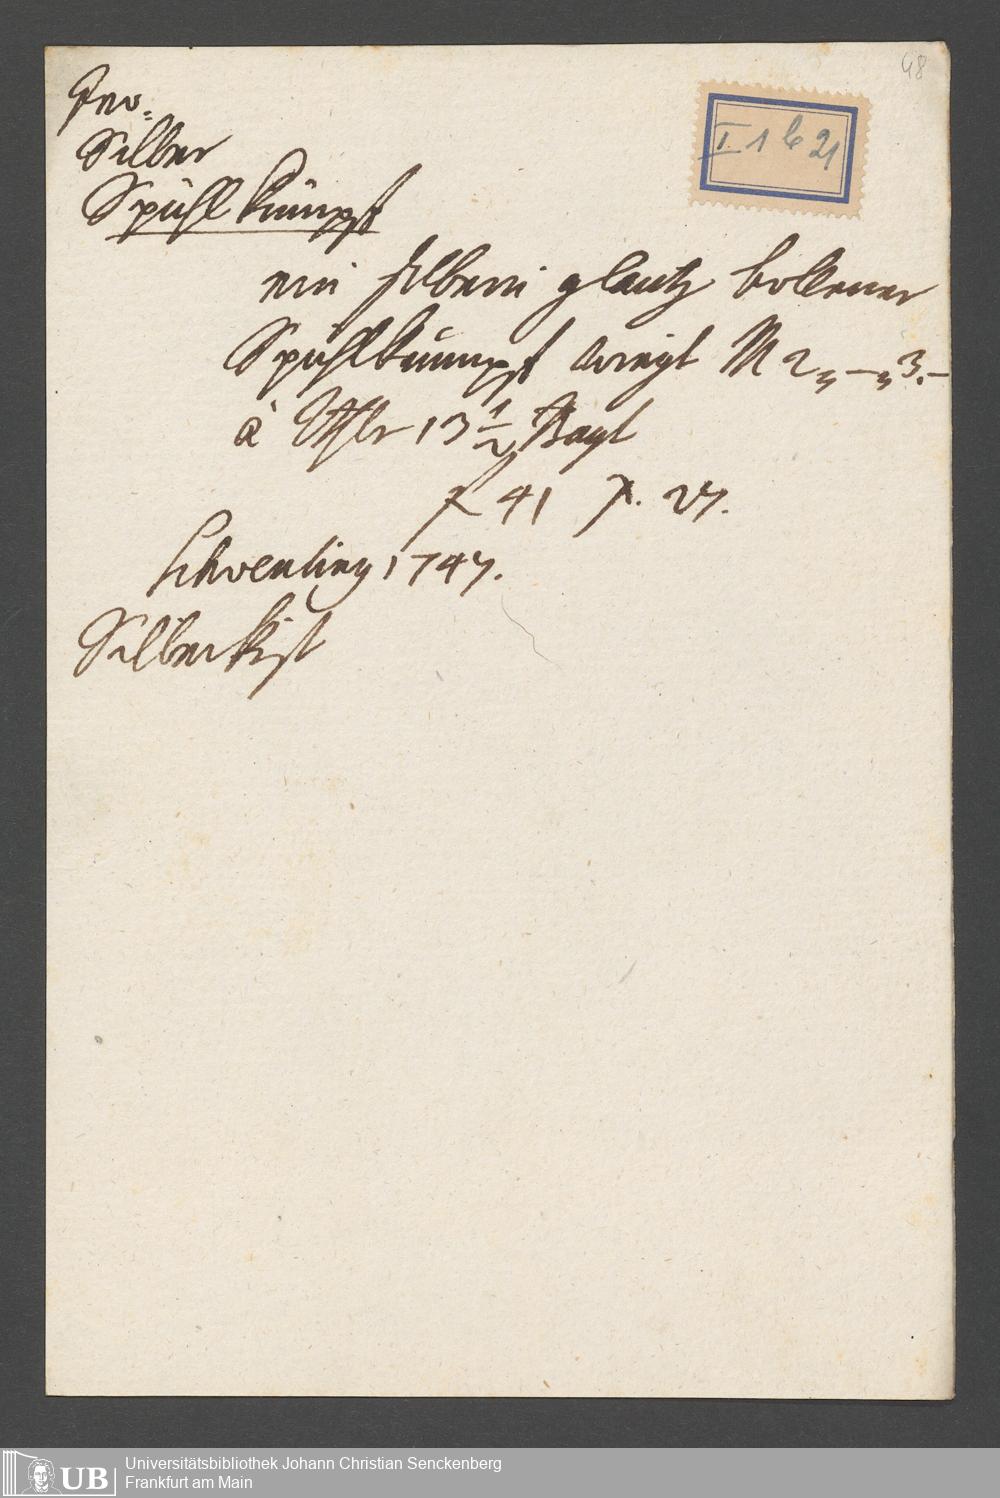 48
I. 1 b 21
Silber
Spühl kümpf
ein silbern glantz
Spühlkümpf wiegt M 2„ – „ 3. –
à Thlr 13 1/2
f 41 x. 27.
1747.
Silberkist
UB
Universitätsbibliothek Johann Christian Senckenberg
Frankfurt am Main